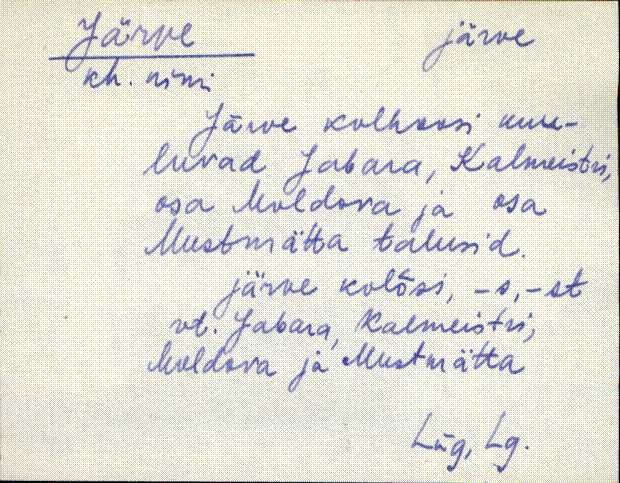 Järve järve
kh. nimi
Järve kolhoosi kuu-
luvad Jabara, Kalmeistri,
osa Moldova ja osa
Mustmätta talusid.
järve kolõsi, -s, -st
vt. Jabara, Kalmeistri,
Moldova ja Mustmätta
Lüg, Lg.